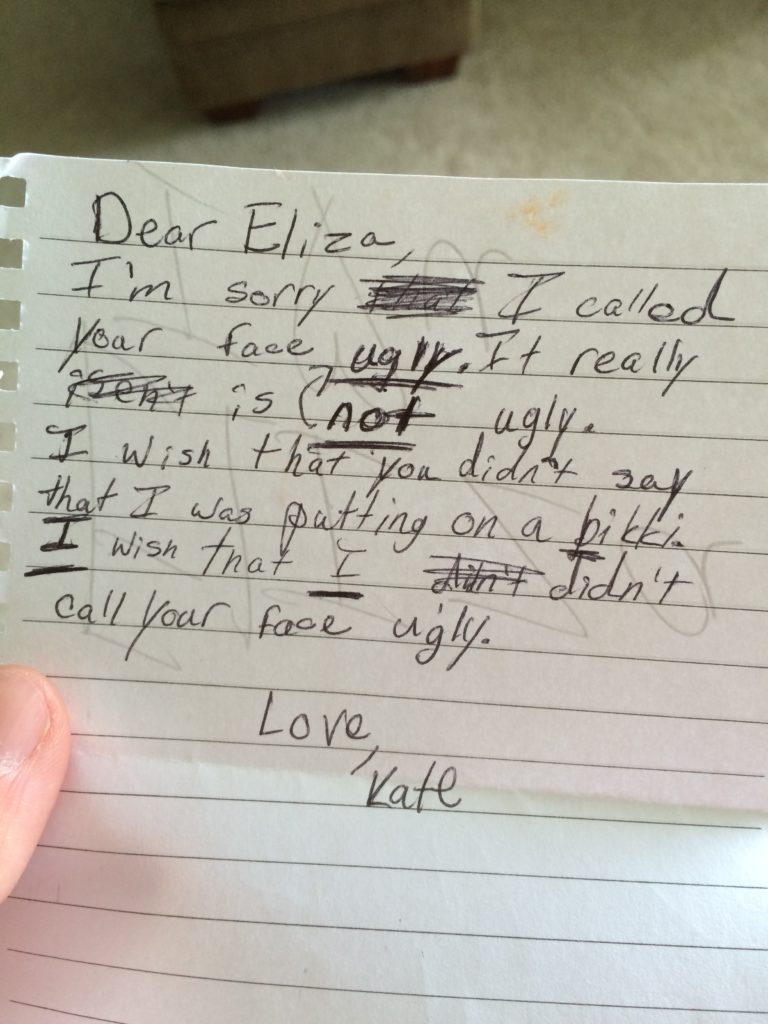 Dear Eliza,
I'm sorry I called
your face ugly. It really
is (not) ugly.
I wish that you didn't say
that I was putting on a bikki.
I wish that I didn't
call your face ugly.
Love,
Kate